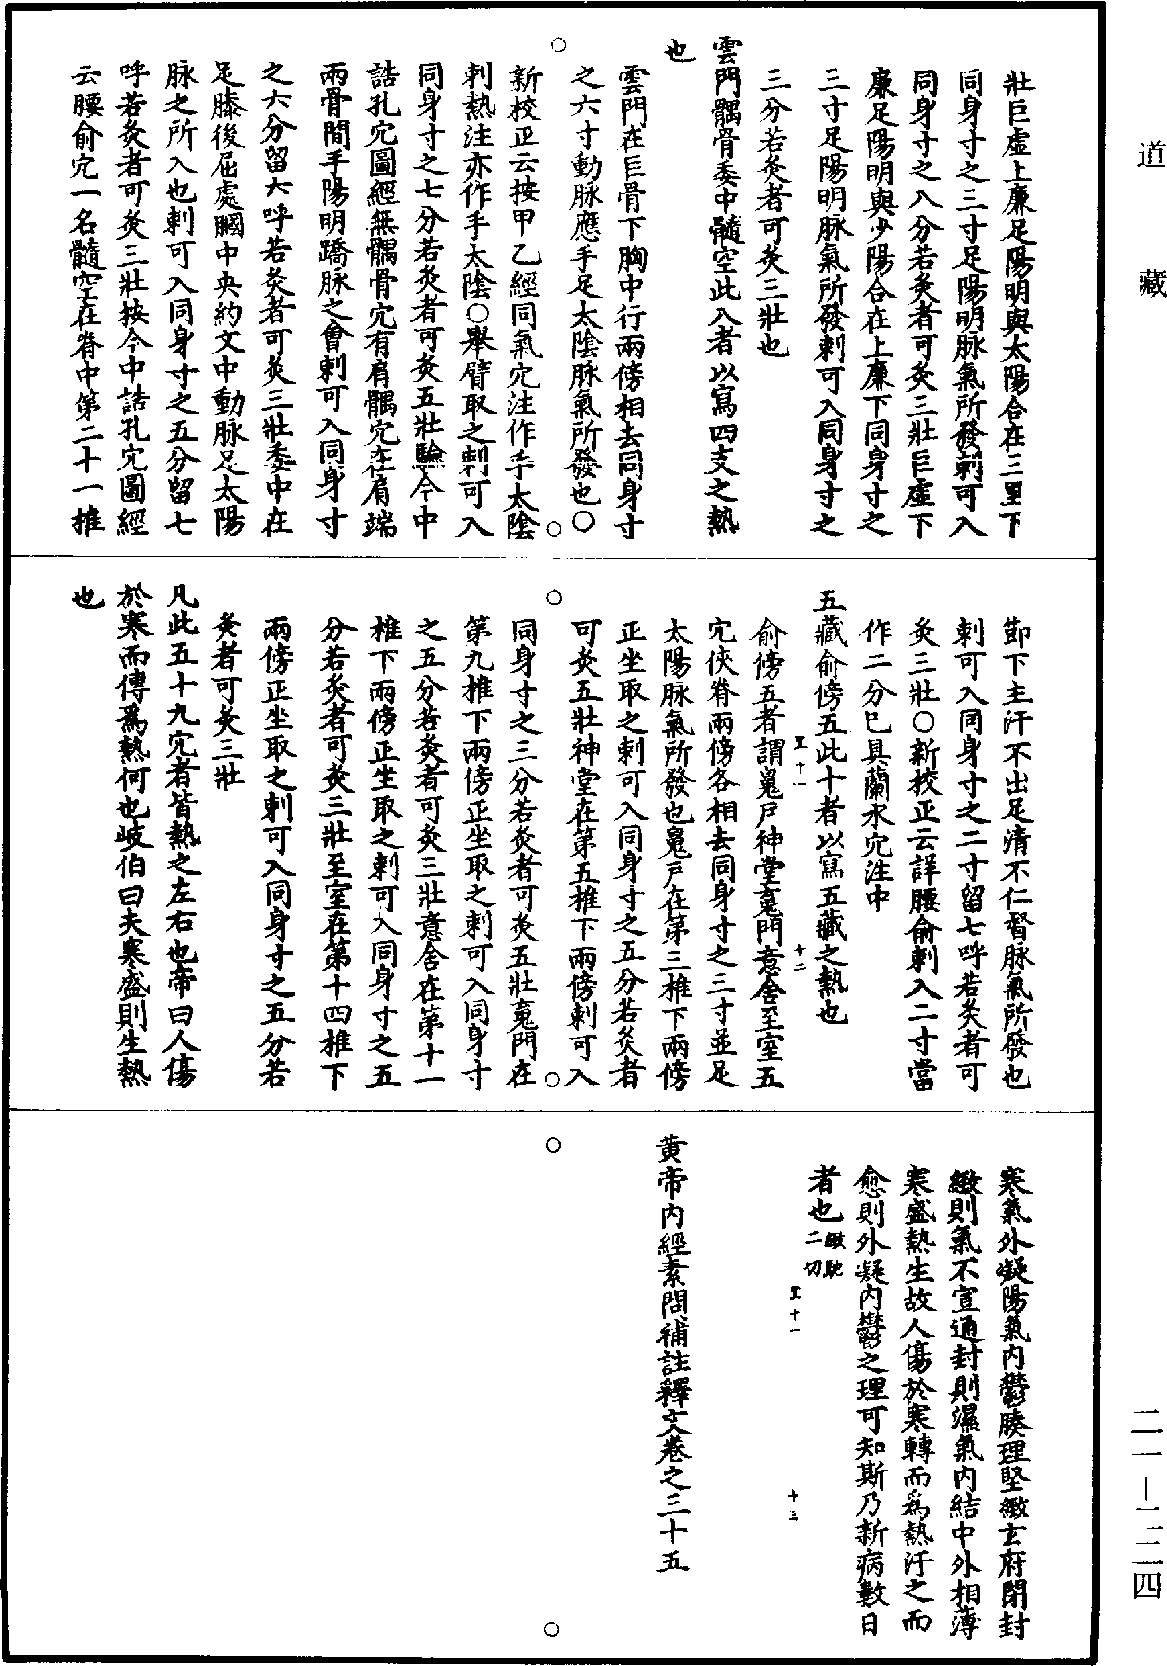 道藏
壯巨虛上廉足陽明與太陽合在三里下
同身寸之三寸足陽明脉氣所發刺可入
同身寸之八分若灸者可灸三壯巨虛下
廉足陽明與少陽合在上廉下同身寸之
三寸足陽明脉氣所發刺可入同身寸之
三分若灸者可灸三壯也
雲門髃骨委中髓空此八者以寫四支之熱
也
雲門在巨骨下胸中行兩傍相去同身寸
之六寸動脉應手足太陰脉氣所發也○
新校正云按甲乙經同氣穴注作手太陰
刺熱注亦作手太陰○舉臂取之刺可入
同身寸之七分若灸者可灸五壯驗今中
誥孔穴圖經無髃骨穴有肩髃穴在肩端
兩骨間手陽明蹻脉之會刺可入同身寸
之六分留六呼若灸者可灸三壯委中在
足膝後屈處膕中央約文中動脉足太陽
脉之所入也刺可入同身寸之五分留七
呼若灸者可灸三壯按今中誥孔穴圖經
云腰俞穴一名髓空在脊中第二十一椎
節下主汗不出足清不仁督脉氣所發也
刺可入同身寸之二寸留七呼若灸者可
灸三壯○新校正云詳腰俞刺入二寸當
作二分已具蘭水穴注中
五藏俞傍五此十者以寫五藏之熱也
里十一
十二
俞傍五者謂䰟戶神堂䰟門意舍至室五
穴俠脊兩傍各相去同身寸之三寸並足
太陽脉氣所發也䰟戶在第三椎下兩傍
正坐取之刺可入同身寸之五分若灸者
可灸五壯神堂在第五椎下兩傍刺可入
同身寸之三分若灸者可灸五壯䰟門在
第九椎下兩傍正坐取之刺可入同身寸
之五分若灸者可灸三壯意舍在第十一
椎下兩傍正坐取之刺可入同身寸之五
分若灸者可灸三壯至室在第十四椎下
兩傍正坐取之刺可入同身寸之五分若
灸者可灸三壯
凡此五十九穴者皆熱之左右也帝曰人傷
於寒而傳爲熱何也岐伯曰夫寒盛則生熱
也
寒氣外凝陽氣內鬱腠理堅緻玄府閉封
緻則氣不宣通封則濕氣內結中外相薄
寒盛熱生故人傷於寒轉而爲熱汗之而
愈則外凝內鬱之理可知斯乃新病數日
者也緻馳二切
里十一
十三
黄帝內經素問補註釋文卷之三十五
二一—二三四